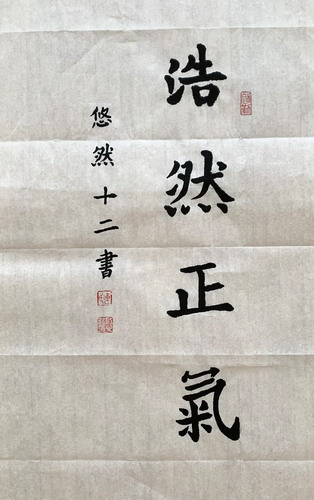 浩然正氣
悠然十二書